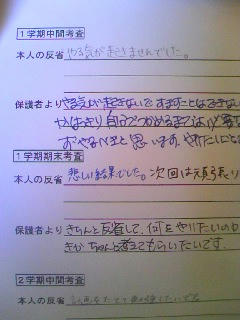 1学期中間考査
本人の反省 やる気が起きませんでした。
保護者より やる気が起きないですますことはできない
やはり自分でつかめるまでは
と思います。
1学期期末考査
本人の反省 悲しい結果でした。次回は頑張り
保護者より きちんと反省して、何をやりたいのか
きちんと考えてもらいたいです。
2学期中間考査
本人の反省 計画をたてて勉強したいです